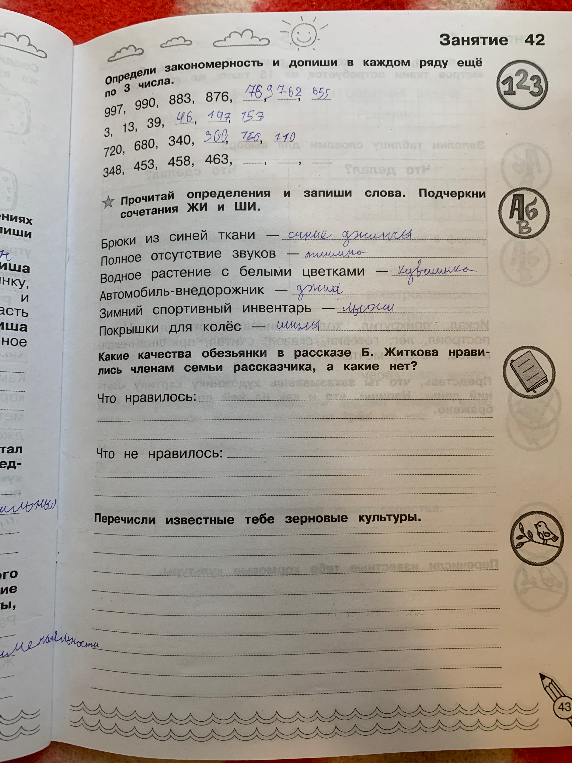 Занятие 42
Определи закономерность и допиши в каждом ряду ещё
по 3 числа.
123
997, 990, 883, 876, 769, 762, 655
3, 13, 39, 46, 147, 157
720, 680, 340, 300, 150, 110
348, 453, 458, 463, , ,
Прочитай определения и запиши слова. Подчеркни
сочетания ЖИ и ШИ.
АБ
В
Брюки из синей ткани — синие джинсы
Полное отсутствие звуков — тишина
Водное растение с белыми цветками — кувшинка
Автомобиль-внедорожник — джип
Зимний спортивный инвентарь — лыжи
Покрышки для колёс — шины
Какие качества обезьянки в рассказе Б. Житкова нрави-
лись членам семьи рассказчика, а какие нет?
Что нравилось:
Что не нравилось:
Перечисли известные тебе зерновые культуры.
43
ениях
пиши
иша
инку,
и
асть
иша
ное
тал
ед-
ого
ние
ты,